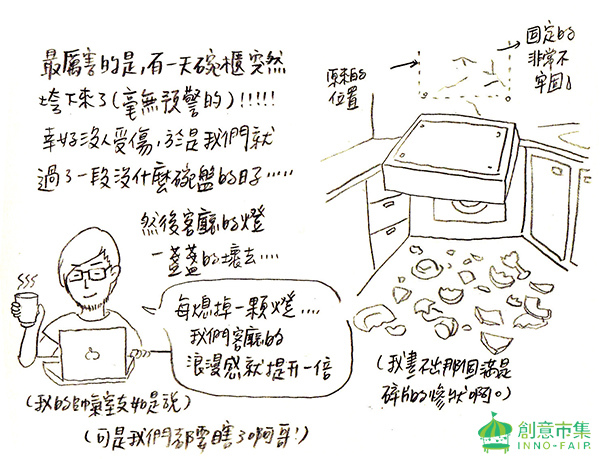 最厲害的是,有一天碗櫃突然
垮下來了(毫無預警的)!!!!!
幸好沒人受傷,於是我們就
過了一段沒什麼碗盤的日子.....
然後客廳的燈
一盞盞的壞去....
每熄掉一顆燈....
我們客廳的
浪漫感就提升一倍
(我的帥氣室友如是說)
(可是我們都要瞎了啊哥!)
原來的
位置
固定的
非常不
牢固。
(我畫不出那個滿是
碎片的慘狀啊。)
創意市集
INNO-FAIR